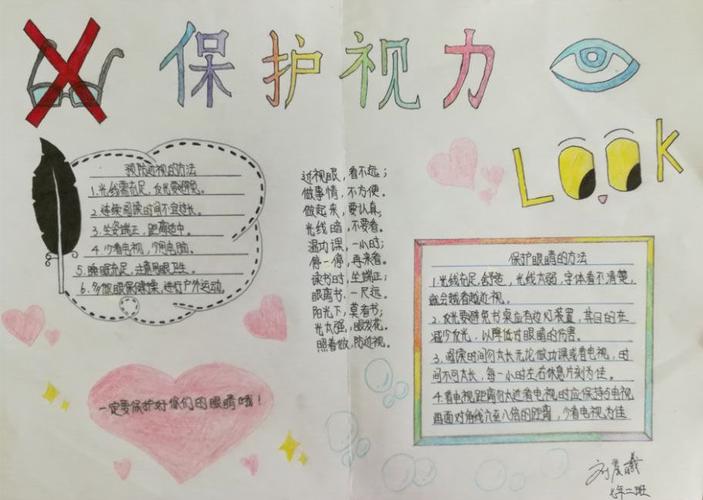 保护视力
LOOK
预防近视的方法
1.光线需充足,反光要避免。
2.连续阅读时间不宜过长。
3.坐姿端正,距离适中。
4.少看电视,少用电脑。
5.睡眠充足,注意用眼卫生。
6.多做眼保健操,进行户外运动。
近视眼,看不远;
做事情,不方便。
做起来,要认真;
光线暗,不要看。
温功课,一小时;
停一停,再来看。
读书时,坐端正;
眼离书,一尺远。
阳光下,莫看书;
光太强,眼发花。
照着做,防近视。
保护眼睛的方法
1.光线充足,舒适,光线太弱,字体看不清楚,
就会越看越近视。
2.反光要避免书桌应有边灯装置,其目的在
减少反光,以降低对眼睛的伤害。
3.阅读时间勿太长无论做功课或看电视,时
间不可太长,每一小时左右休息片刻为佳。
4.看电视距离勿太近看电视时应保持与电视
画面对角线六至八倍的距离,少看电视为佳
一定要保护好我们的眼睛哦!
七年二班